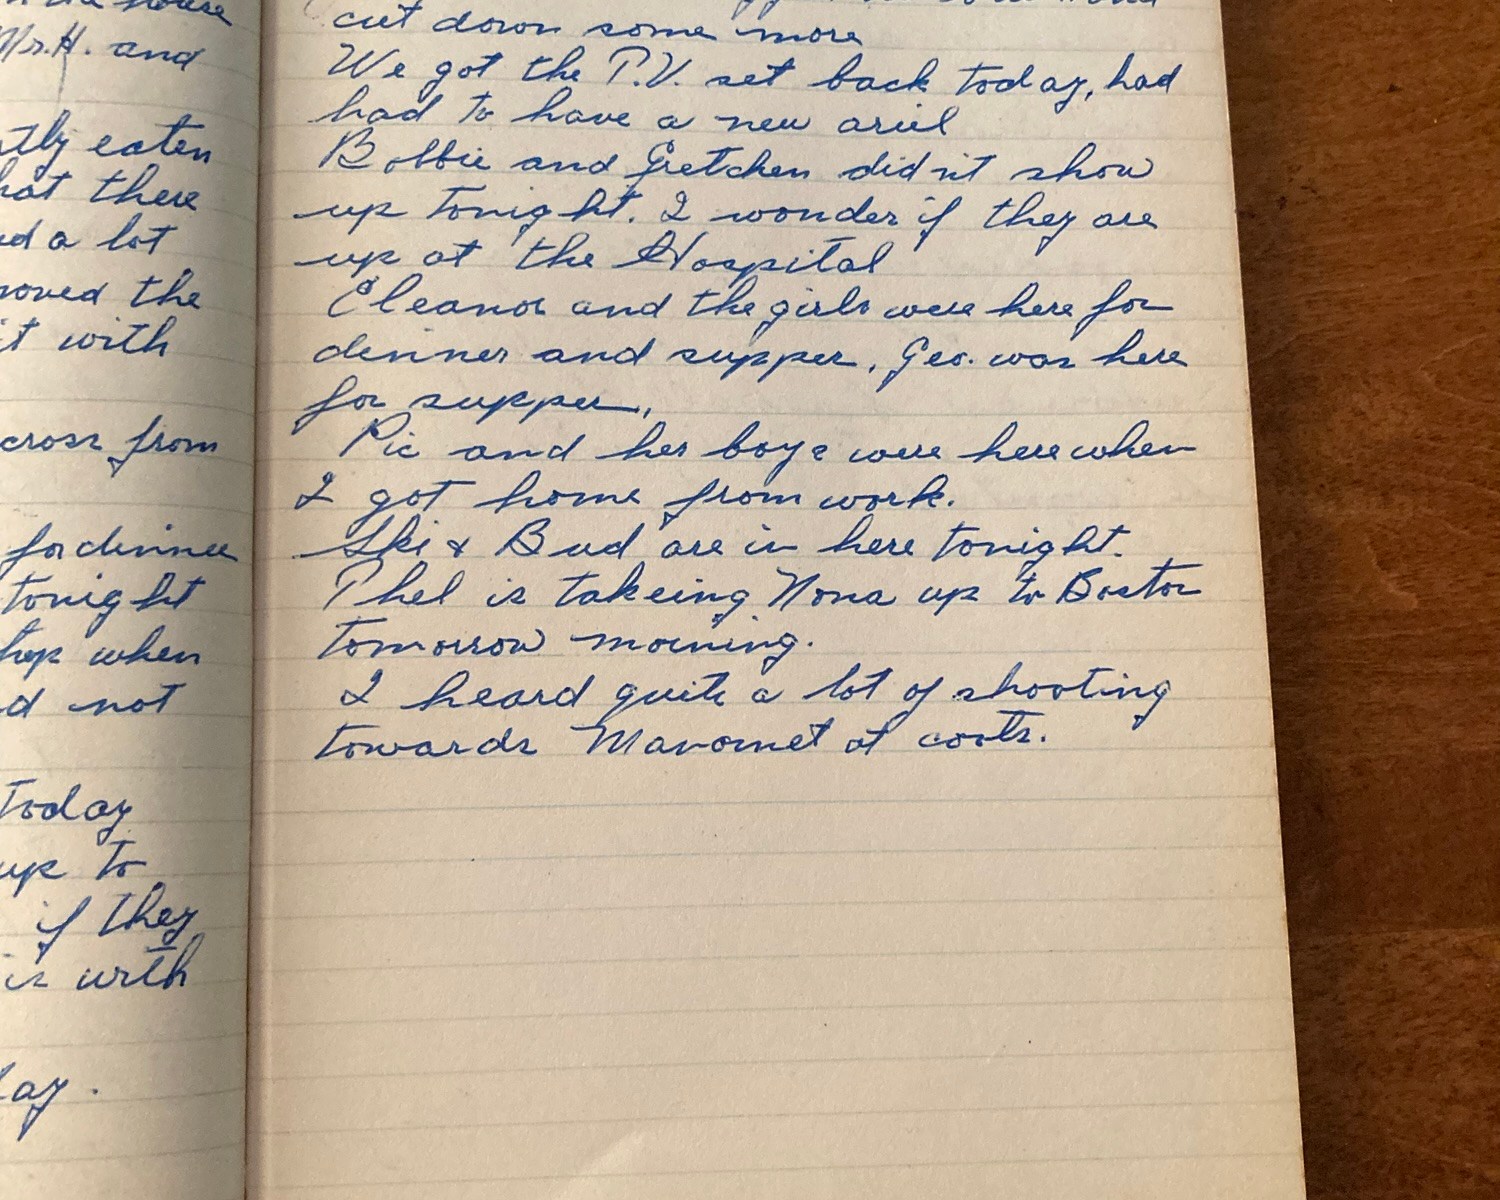 house
Mr. H. and
eaten
there
a lot
the
it with
from
for dinner
tonight
when
not
today
up to
if they
is with
cut down some more
We got the T.V. set back today, had
had to have a new ariel
Bobbie and Gretchen didn't show
up tonight. I wonder if they are
up at the Hospital
Eleanor and the girls were here for
dinner and supper. Geo. was here
for supper.
Pic and her boys were here when
I got home from work.
Ski & Bud are in here tonight.
Phel is takeing Nona up to Boston
tomorrow morning.
I heard quite a lot of shooting
towards Manomet at coots.